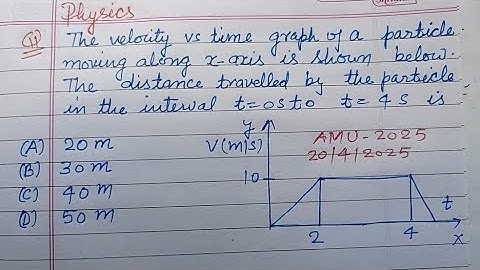 Physics
Q The velocity vs time graph of a particle
moving along x-axis is shown below.
The distance travelled by the particle
in the interval t=0s to t=4s is
(A) 20 m
(B) 30 m
(C) 40 m
(D) 50 m
y
V(m/s)
AMU-2025
20/4/2025
10
t
2
4
x